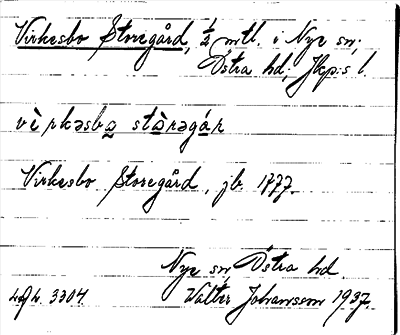 Virkesbo Storegård, 1/2 mtl. i Nye sn;
Östra hd; Jkp:s l.
vè̀rkəsbo stòrəgár
Virkesbo Storegård, jb 1777
Nye sn, Östra hd.
Valter Johansson 1937.
3304.